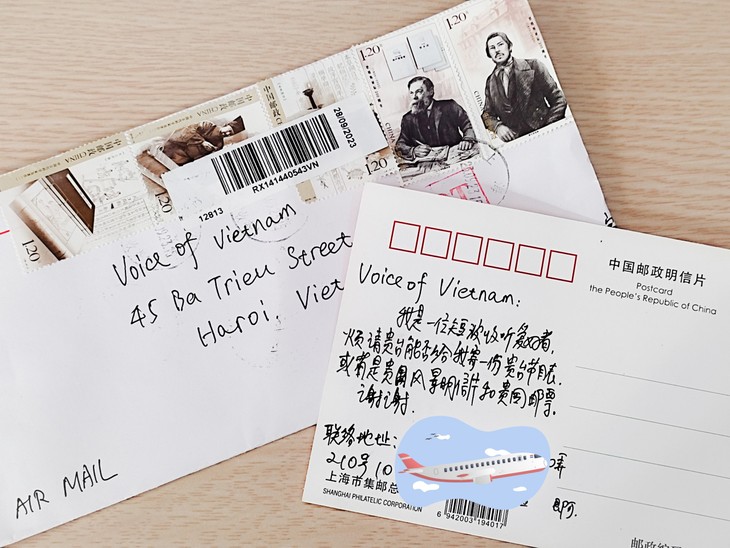 1.20
1.20
中国邮政 CHINA
中国邮政 CHINA
CHINA
CHINA
28/09/2023
RX141440543VN
12813
120
120
Voice of Vietnam
45 Ba Trieu Street
Hanoi, Viet
AIR MAIL
中国邮政明信片
Postcard
the People's Republic of China
Voice of Vietnam:
我是一位短波收听爱好者,
烦请贵台能否给我寄一份贵台节目表.
或者是贵国风景明信片和贵国邮票.
谢谢.
联络地址:
210号10
弄
即可.
上海市集邮总
SHANGHAI PHILATELIC CORPORATION
6 942003 194017